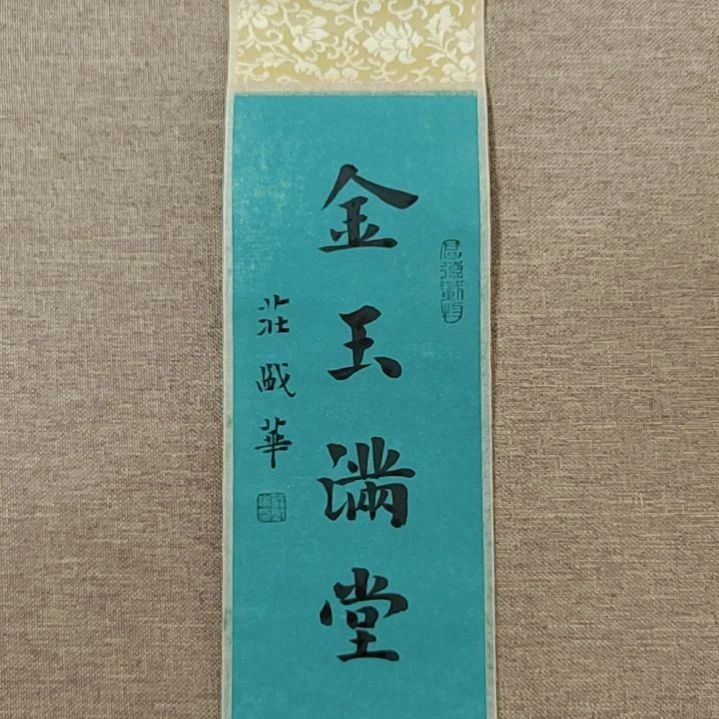 金玉滿堂
莊戲華